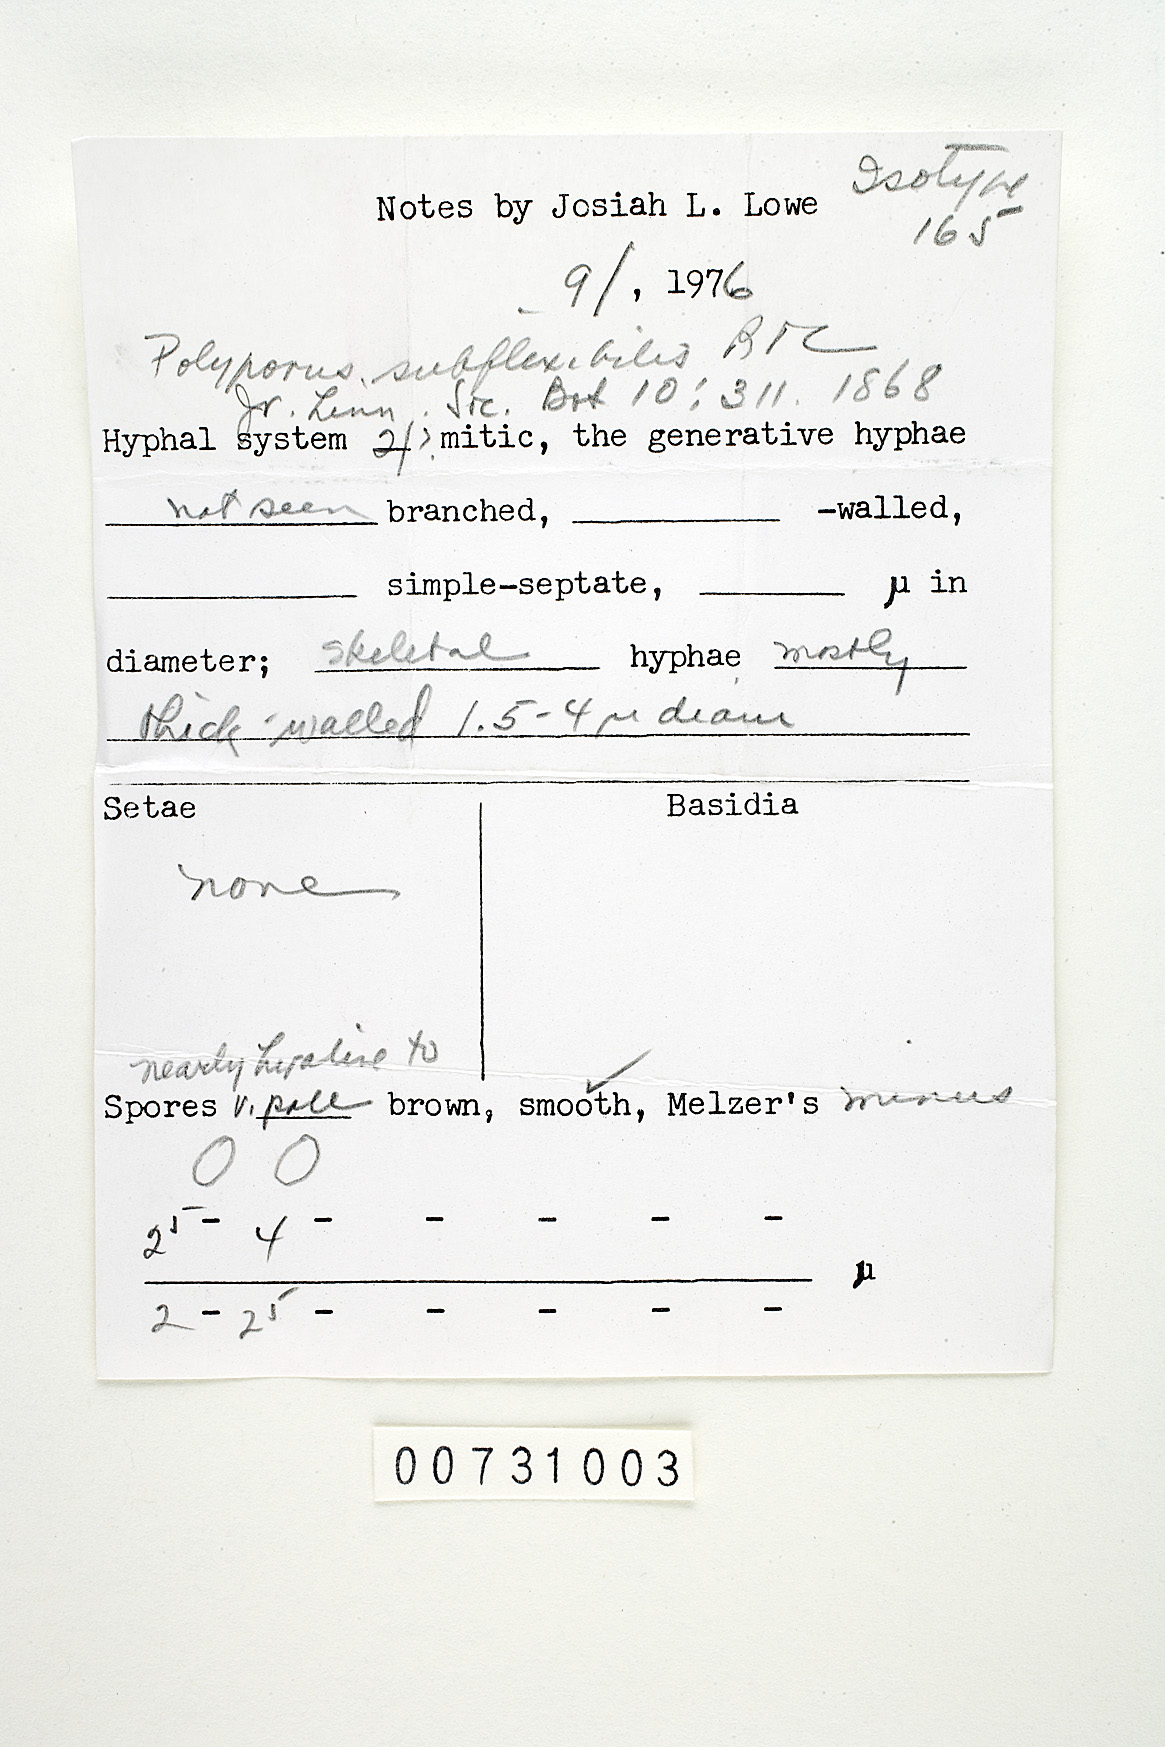 Isotype
Notes by Josiah L. Lowe
165
9/ , 1976
Polyporus subflexibilis B & C
Jr. Linn. Soc. Bot 10: 311. 1868
Hyphal system 2(?) mitic, the generative hyphae
not seen branched, ____ -walled,
____ simple-septate, ____ µ in
diameter; skeletal hyphae mostly
thick-walled 1.5-4 µ diam
Setae Basidia
none
nearly hyaline to
Spores v. pale brown, smooth, ✓ Melzer's minus
2⁵ - 4 - - - - -
µ
2 - 2⁵ - - - - -
00731003